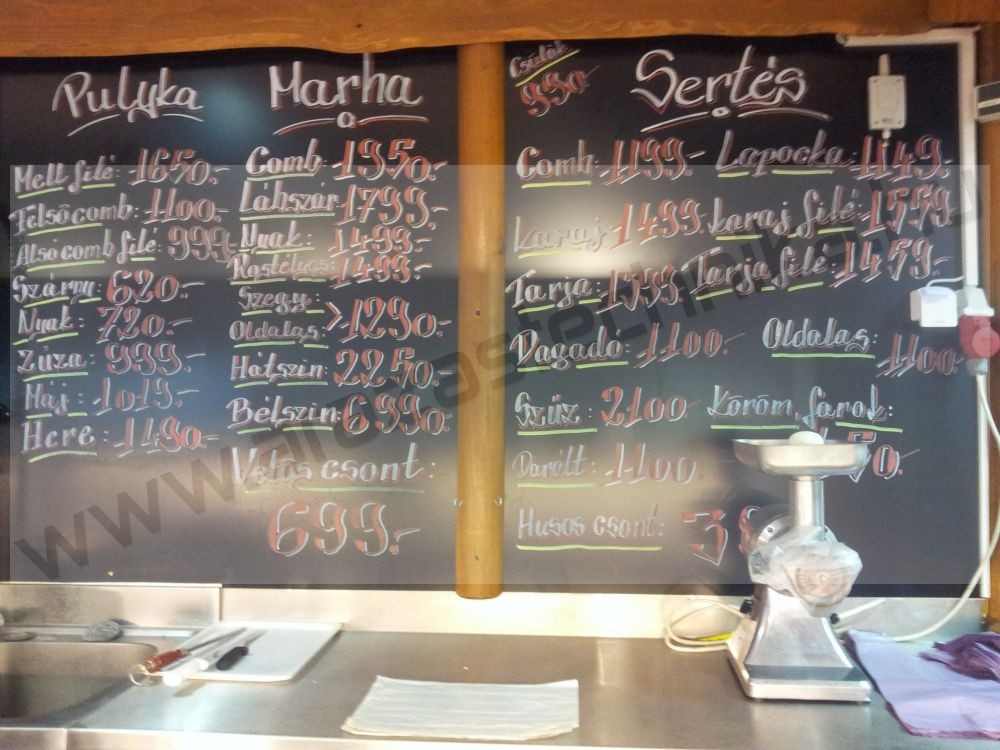 Pulyka
Mell filé: 1650.-
Felsőcomb: 1100.-
Alsócomb filé: 999.-
Szárny: 620.-
Nyak: 720.-
Zúza: 999.-
Máj: 1019.-
Here: 1490.-
Marha
Comb: 1950.-
Lábszár: 1799.-
Nyak: 1499.-
Rostélyos: 1499.-
Szegy:
Oldalas: >1290.-
Hátszín: 2250.-
Bélszín: 6990.-
Velős csont:
699.-
Csülök
990
Sertés
Comb: 1199.- Lapocka 1149.-
Karaj 1499.- karaj filé: 1559.
Tarja: 1399. Tarja filé: 1459.-
Dagadó: 1100.- Oldalas: 1100.
Szűz: 2100 Köröm, farok:
Darált: 1100.
Húsos csont: